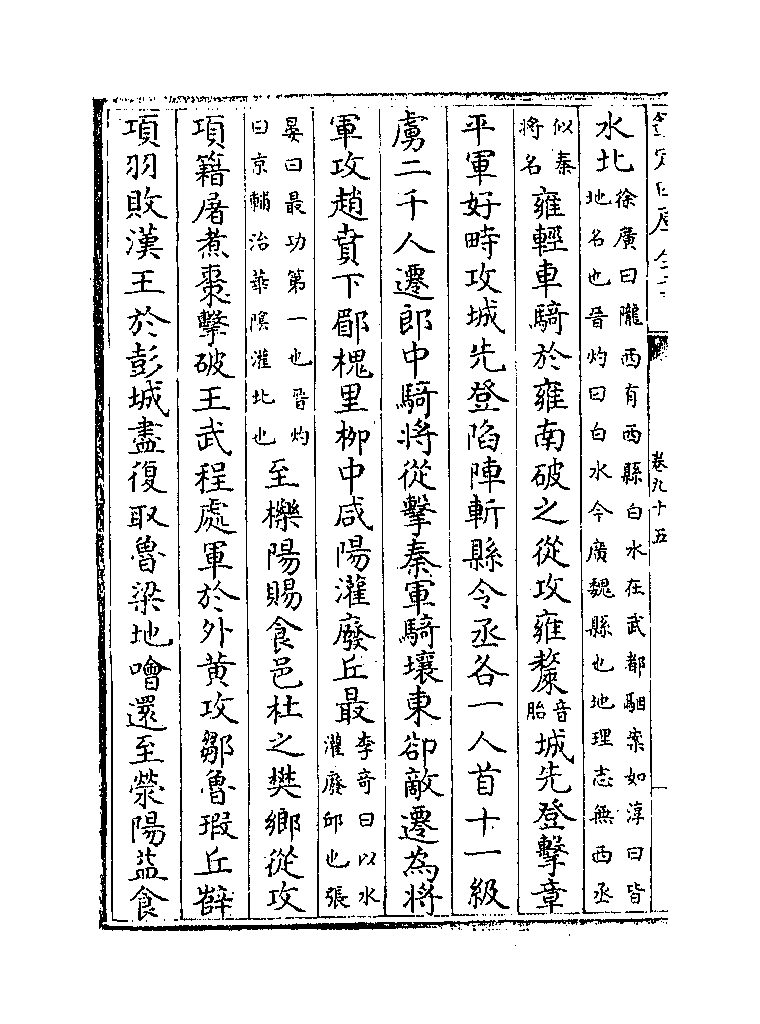 欽定四庫全書 卷九十五
水北徐廣曰隴西有西縣白水在武都駰案如淳曰皆地名也晉灼曰白水今廣魏縣也地理志無西丞
似秦將名雍輕車騎於雍南破之從攻雍斄音胎城先登擊章
平軍好畤攻城先登陷陣斬縣令丞各一人首十一級
虜二千人遷郎中騎將從擊秦軍騎壤東卻敵遷為將
軍攻趙賁下郿槐里柳中咸陽灌廢丘最李奇曰以水灌廢邱也張
晏曰最功第一也晉灼曰京輔治華陰灌北也至櫟陽賜食邑杜之樊鄉從攻
項籍屠煮棗擊破王武程處軍於外黃攻鄒魯瑕丘薛
項羽敗漢王於彭城盡復取魯梁地噲還至滎陽益食